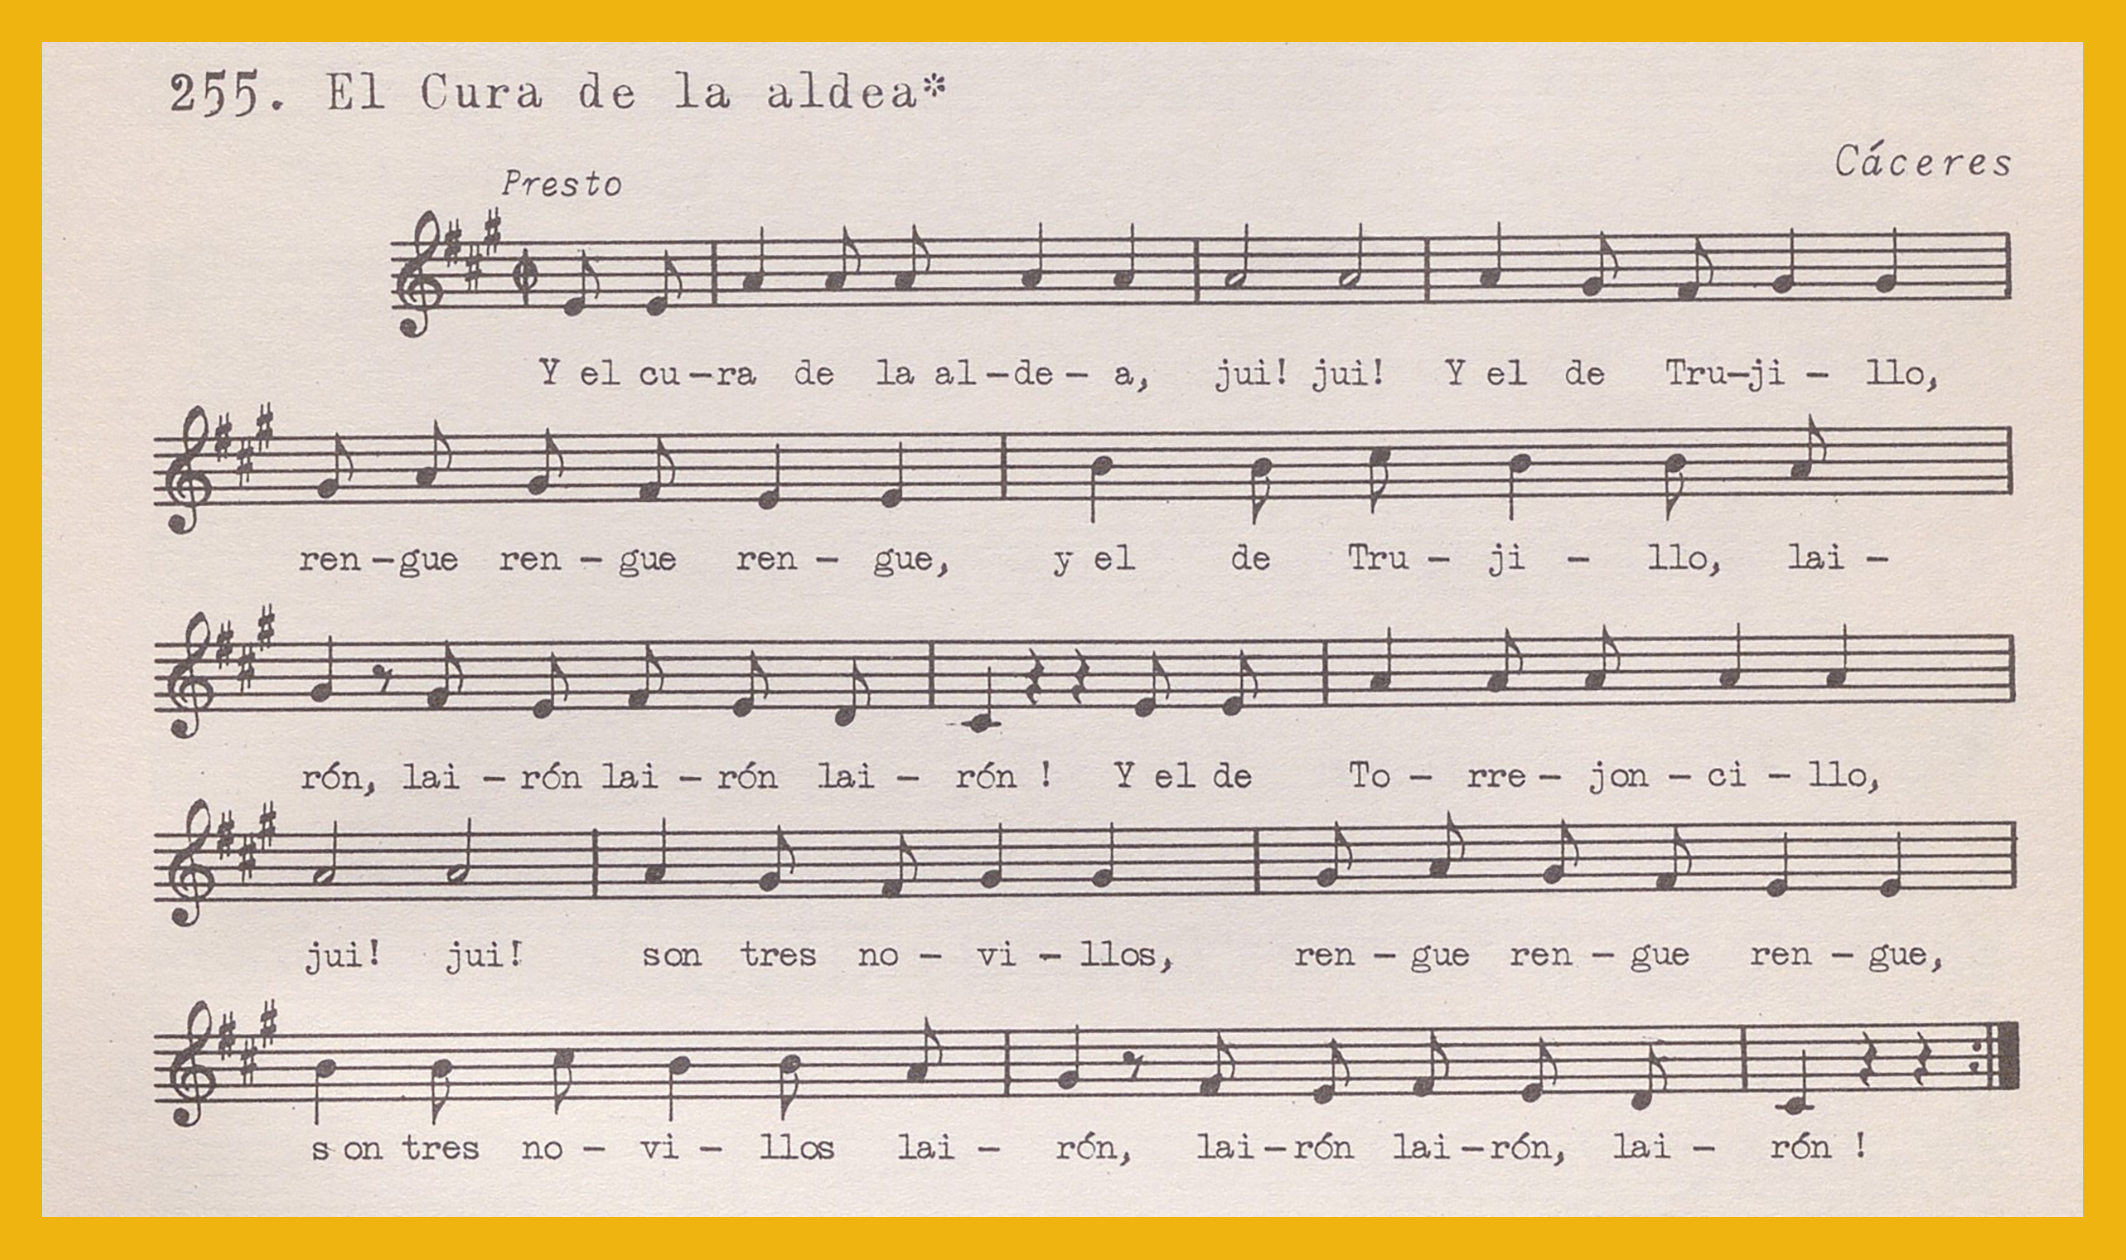 255. El Cura de la aldea*
Cáceres
Presto
Y el cu-ra de la al-de-a, jui! jui! Y el de Tru-ji-llo,
ren-gue ren-gue ren-gue, y el de Tru-ji-llo, lai-
rón, lai-rón lai-rón lai-rón! Y el de To-rre-jon-ci-llo,
jui! jui! son tres no-vi-llos, ren-gue ren-gue ren-gue,
son tres no-vi-llos lai-rón, lai-rón lai-rón, lai-rón!